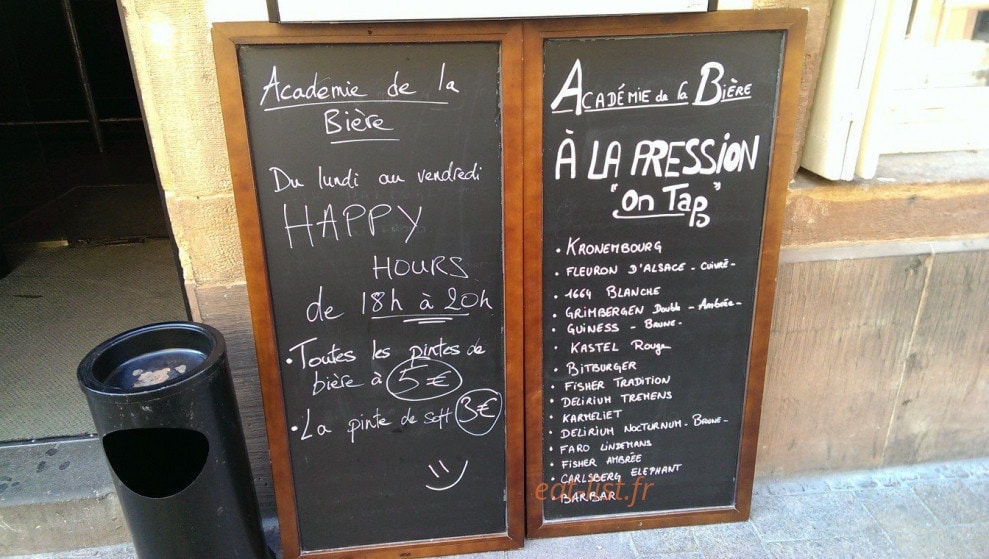 Académie de la
Bière
Du lundi au vendredi
HAPPY
HOURS
de 18h à 20h
• Toutes les pintes de
bière à 5€
• La pinte de soft 3€
ACADÉMIE de la BIÈRE
À LA PRESSION
"on Tap"
• KRONEMBOURG
• FLEURON D'ALSACE - CUIVRÉ -
• 1664 BLANCHE
• GRIMBERGEN Double - Ambrée -
• GUINESS - BRUNE -
• KASTEL Rouge
• BITBURGER
• FISHER TRADITION
• DELIRIUM TREMENS
• KARMELIET
• DELIRIUM NOCTURNUM - BRUNE -
• FARO LINDEMANS
• FISHER AMBRÉE
• CARLSBERG ELEPHANT
• BARBAR
eat-list.fr